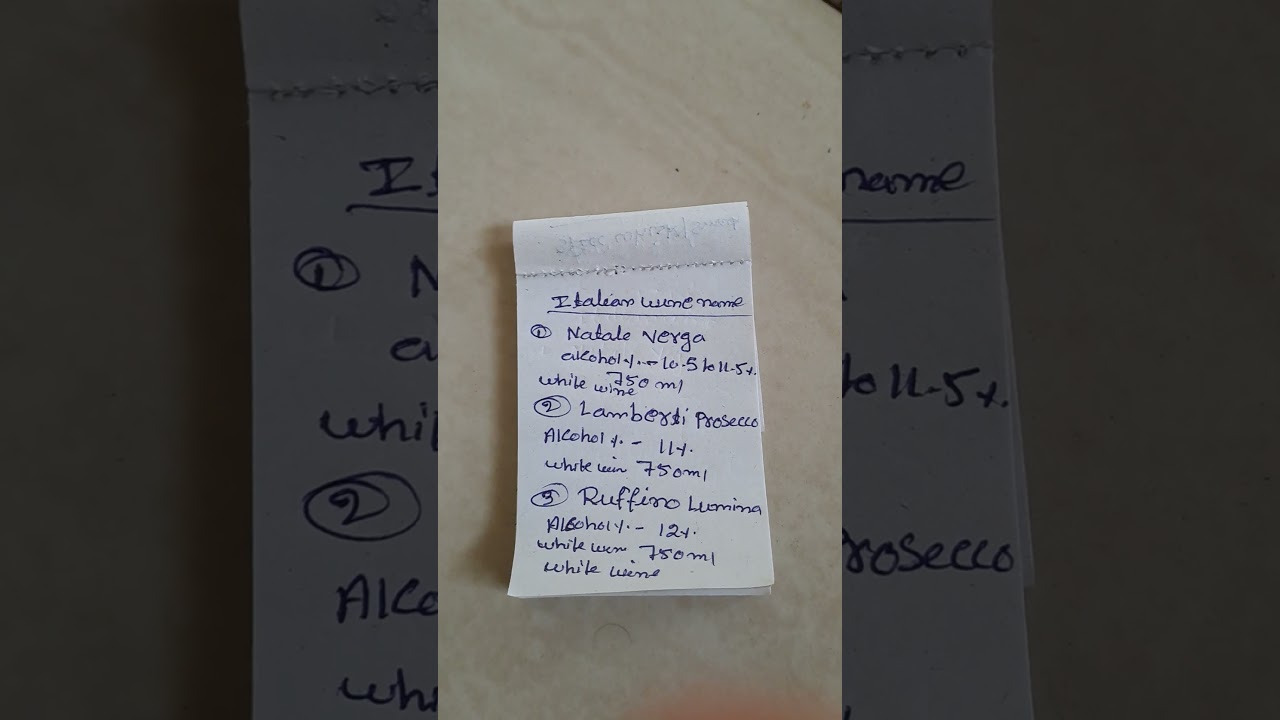 Italian wine name
① Natale Verga
alcohol%. - 10.5 to 11.5%.
750 ml
white wine
② Lamberti Prosecco
Alcohol %. - 11%.
white win 750ml
③ Ruffino Lumina
Alcohol%. - 12%.
white win 750ml
white wine